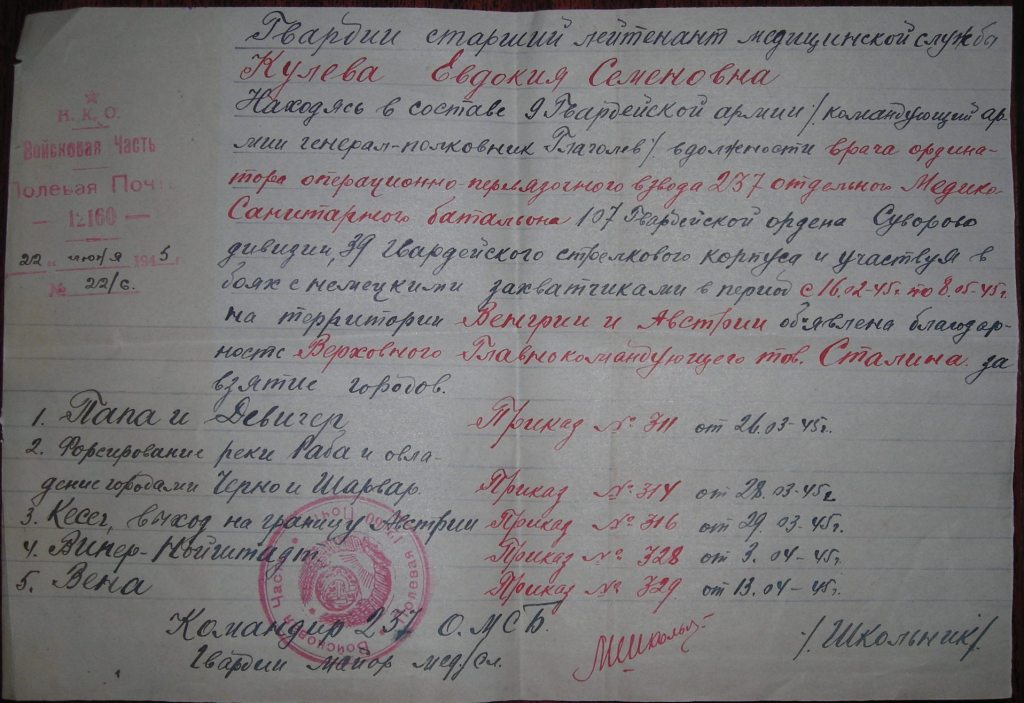 Гвардии старший лейтенант медицинской службы
Кулева Евдокия Семеновна
Находясь в составе 9 Гвардейской армии /командующий ар-
мии генерал-полковник Глаголев/ в должности врача ордина-
тора операционно-перевязочного взвода 237 отдельного Медико
Санитарного батальона 107 Гвардейской ордена Суворова
дивизии, 39 Гвардейского стрелкового корпуса и участвуя в
боях с немецкими захватчиками в период с 16.02-45г. по 8.05-45г.
на территории Венгрии и Австрии объявлена благодар-
ность Верховного Главнокомандующего тов. Сталина за
взятие городов.
Н.К.О.
Войсковая Часть
Полевая Почта
— 12160 —
22 " июня 1945
№ 22/с.
1. Папа и Девичер Приказ № 311 от 26.03-45г.
2. Форсирование реки Раба и овла-
дение городами Черно и Шарвар. Приказ № 314 от 28.03-45г.
3. Кесег, выход на границу Австрии Приказ № 316 от 29.03-45г.
4. Винер-Нойштадт Приказ № 328 от 3.04-45г.
5. Вена Приказ № 329 от 13.04-45г.
Войсковая Часть Полевая Почта
Командир 237 О.М.С.Б.
Гвардии майор мед/сл. /Школьник/